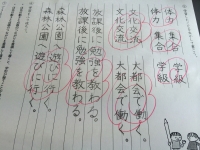 体力 集合 学級
体力 集合 学級
文化交流 大都会で働く。
文化交流 大都会で働く。
放課後に勉強を教わる。
放課後に勉強を教わる。
森林公園へ遊びに行く。
森林公園へ遊びに行く。